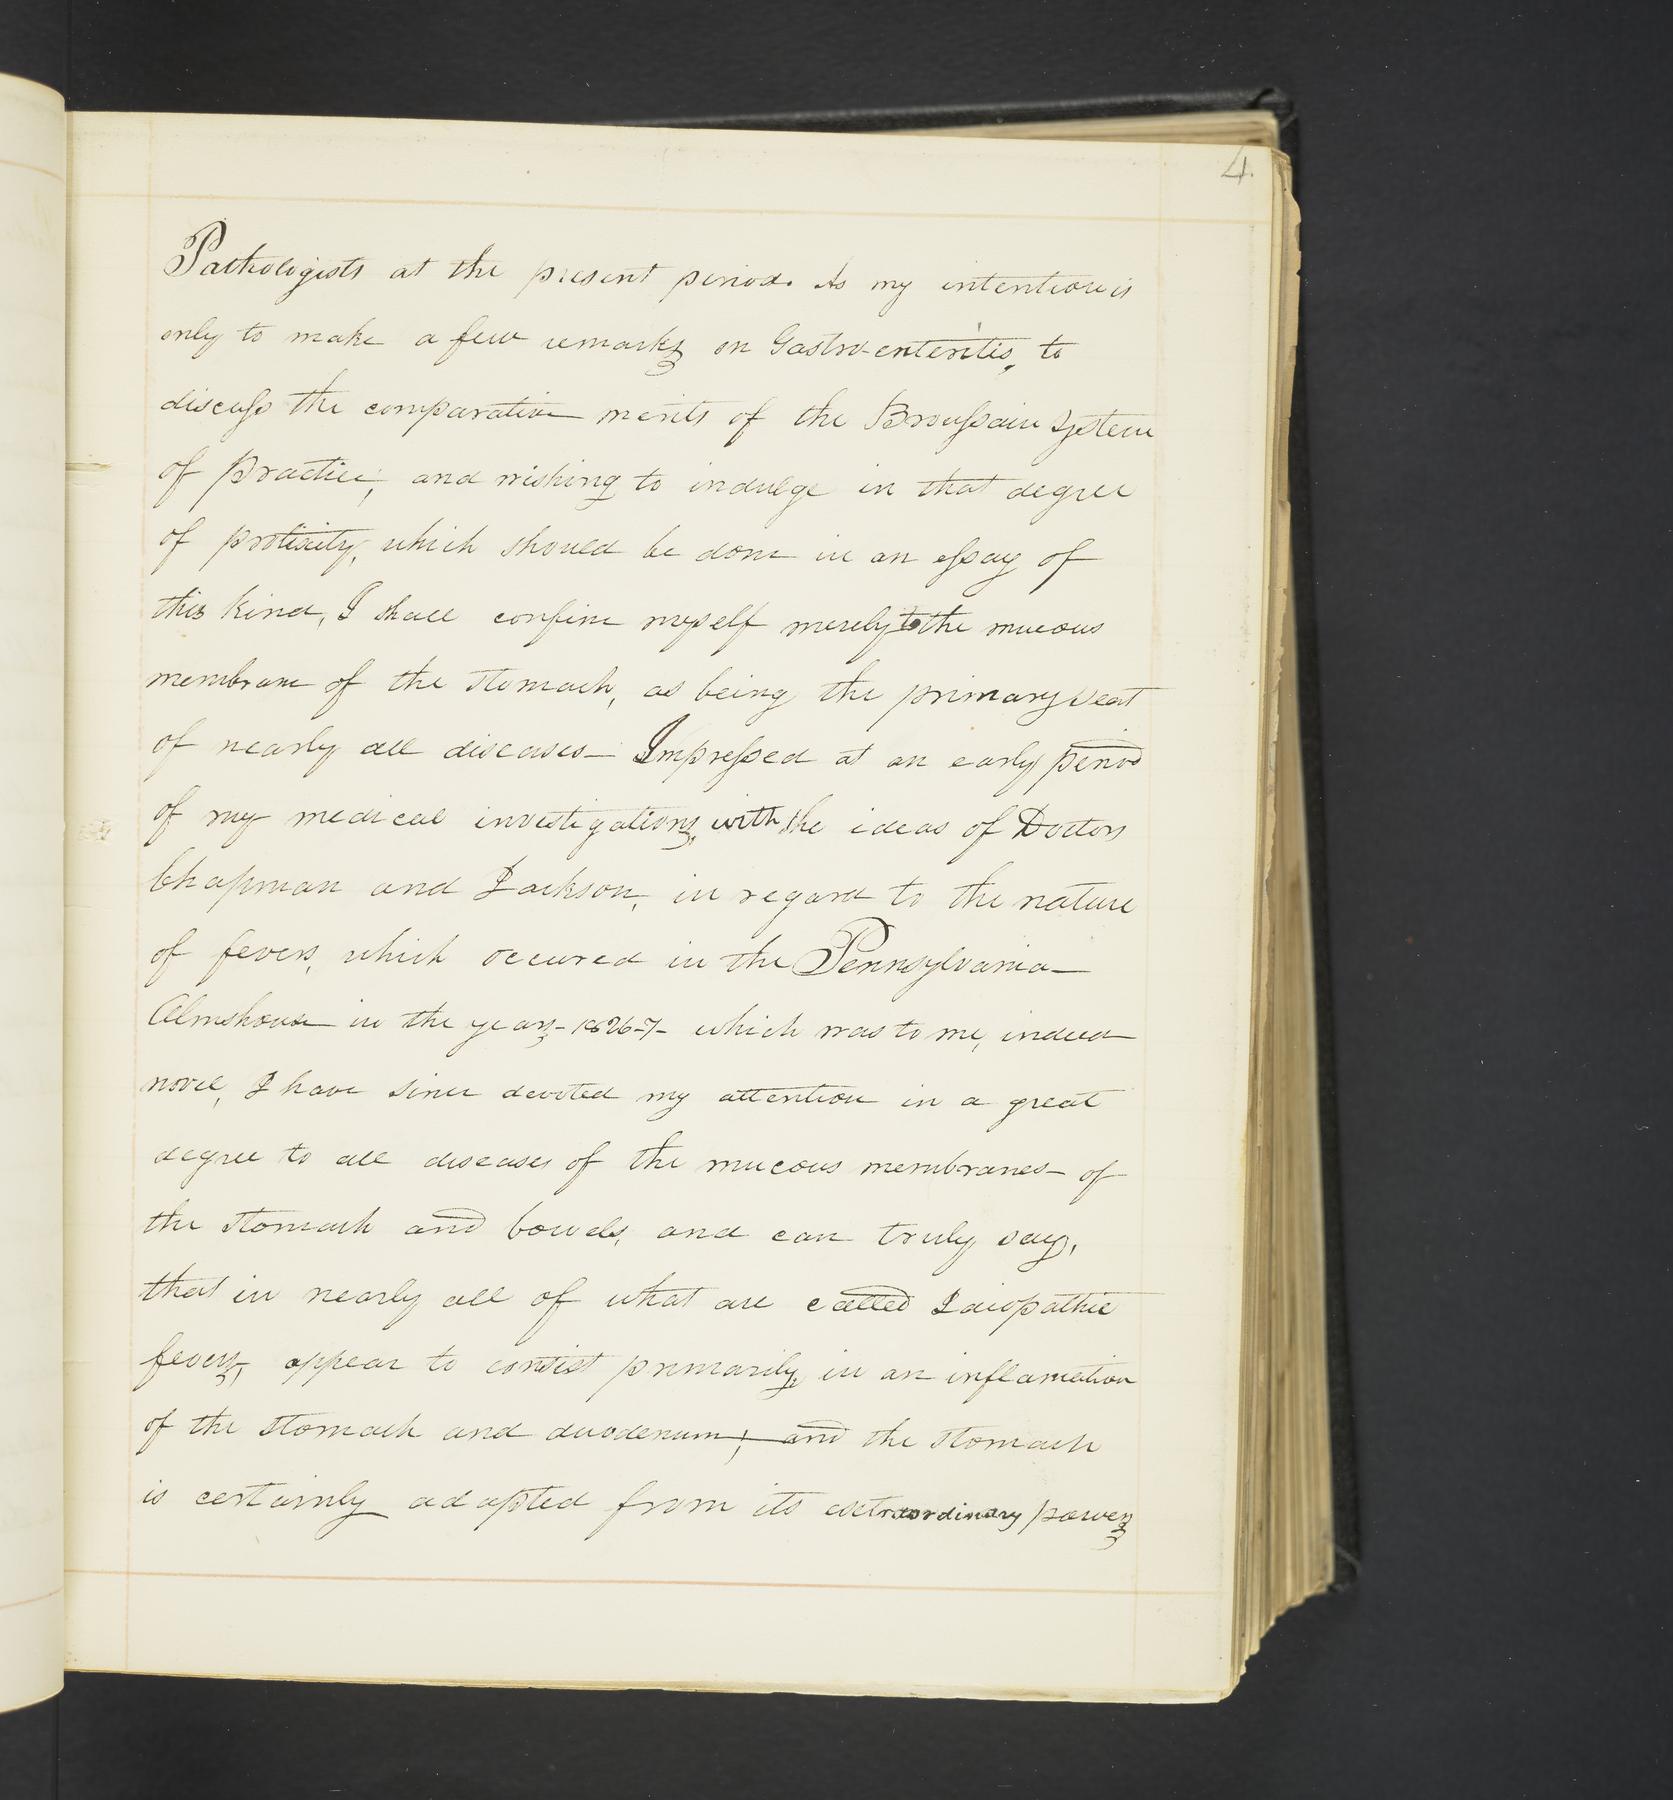 4.
Pathologists at the present period. As my intention is
only to make a few remarks on Gastro-enteritis, to
discuss the comparative merits of the Broussain System
of practice, and wishing to indulge in that degree
of prolixity, which should be done in an essay of
this kind, I shall confine myself merely to the mucous
membrane of the stomach, as being the primary seat
of nearly all diseases— Impressed at an early period
of my medical investigations, with the ideas of Doctors
Chapman and Jackson, in regard to the nature
of fevers, which occured in the Pennsylvania—
Almshouse in the years- 1826-7- which was to me, indeed
novel, I have since devoted my attention in a great
degree to all diseases of the mucous membranes— of
the stomach and bowels, and can truly say,
that in nearly all of what are called Idiopathic
fevers, appear to consist primarily, in an inflamation
of the stomach and duodenum; and the stomach
is certainly adapted from its extraordinary powers